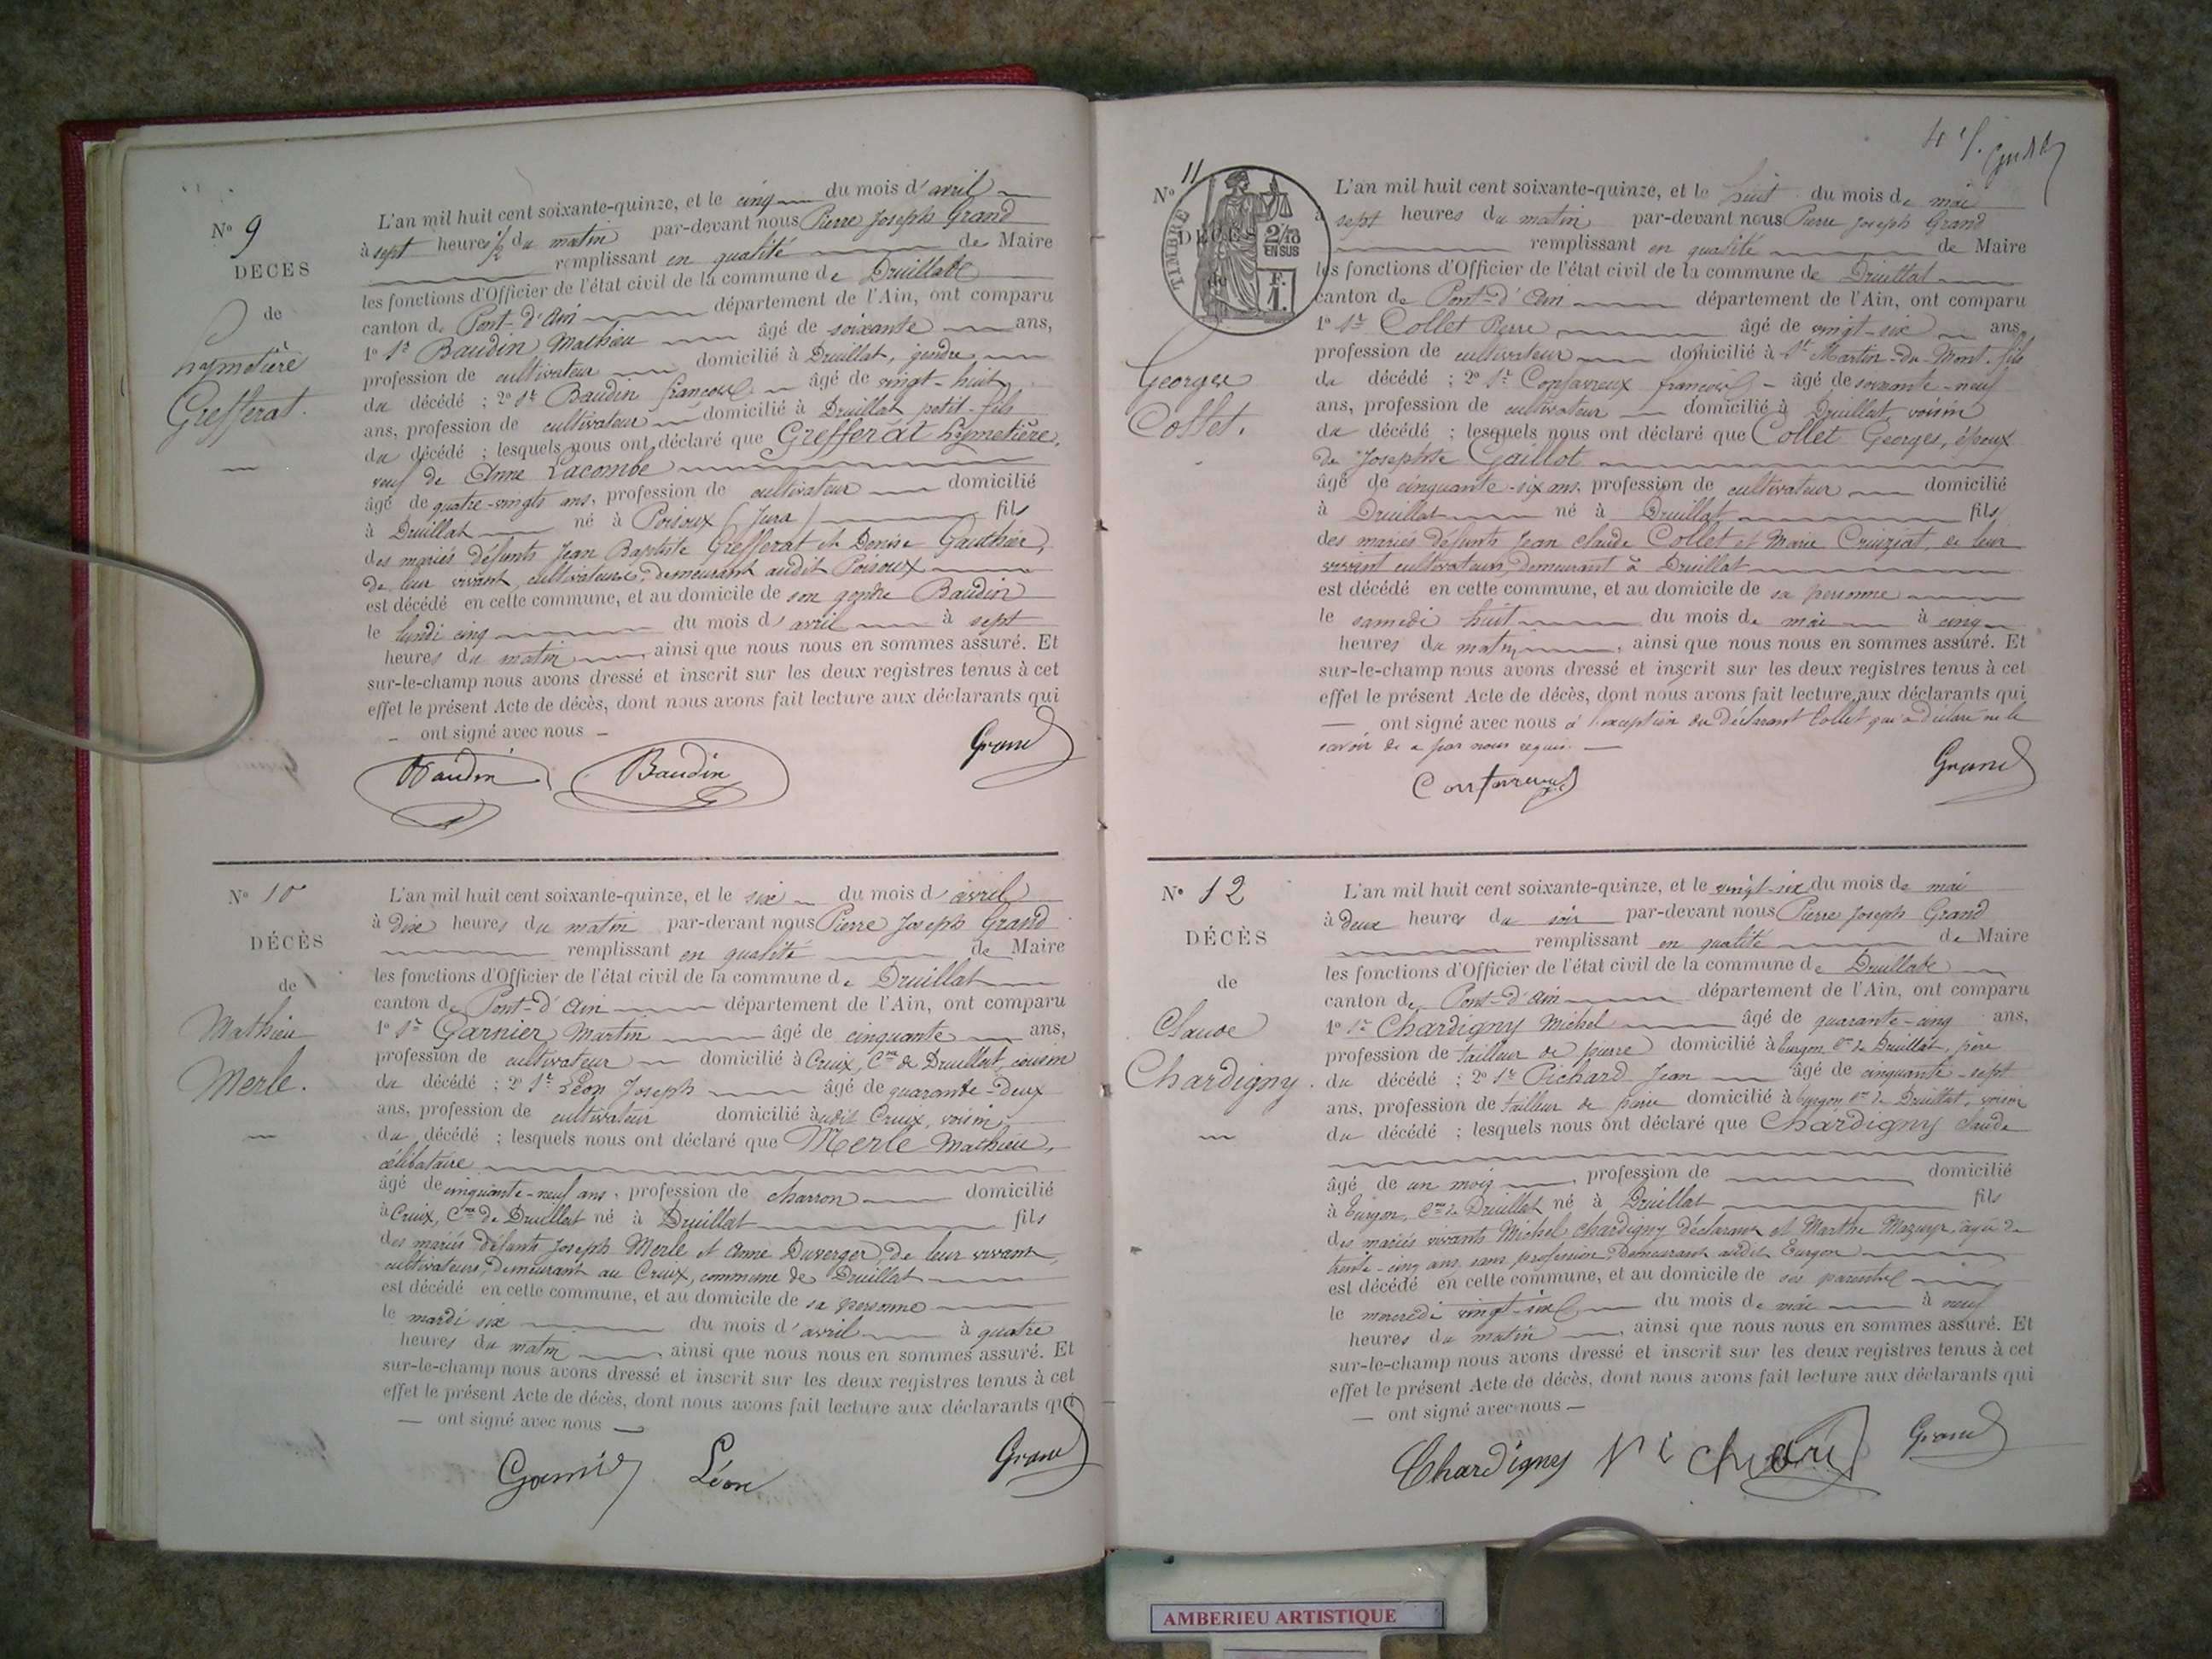 Nº 9
DÉCÈS
de
hymetière
Grefferat.
L'an mil huit cent soixante-quinze, et le cinq du mois d'avril
à sept heures ½ du matin par-devant nous Pierre Joseph Grand
remplissant en qualité de Maire
les fonctions d'Officier de l'état civil de la commune de Druillat
canton de Pont-d'Ain département de l'Ain, ont comparu
1º Sr Baudin Mathieu âgé de soixante ans,
profession de cultivateur domicilié à Druillat, gendre
du décédé ; 2º Sr Baudin françois âgé de vingt-huit
ans, profession de cultivateur domicilié à Druillat petit-fils
du décédé ; lesquels nous ont déclaré que Grefferat hymetière,
veuf de Anne Lacombe
âgé de quatre-vingts ans, profession de cultivateur domicilié
à Druillat né à Poisoux (Jura) fils
des mariés défunts Jean Baptiste Grefferat et Denise Gauthier,
de leur vivant cultivateurs, demeurant audit Poisoux
est décédé en cette commune, et au domicile de son gendre Baudin
le lundi cinq du mois d'avril à sept
heures du matin, ainsi que nous nous en sommes assuré. Et
sur-le-champ nous avons dressé et inscrit sur les deux registres tenus à cet
effet le présent Acte de décès, dont nous avons fait lecture aux déclarants qui
— ont signé avec nous —
Baudin Baudin Grand
Nº 10
DÉCÈS
de
Mathieu
Merle.
L'an mil huit cent soixante-quinze, et le six du mois d'avril
à dix heures du matin par-devant nous Pierre Joseph Grand
remplissant en qualité de Maire
les fonctions d'Officier de l'état civil de la commune de Druillat
canton de Pont-d'Ain département de l'Ain, ont comparu
1º Sr Garnier Martin âgé de cinquante ans,
profession de cultivateur domicilié à Cruix, Cne de Druillat, cousin
du décédé ; 2º Sr Léon Joseph âgé de quarante-deux
ans, profession de cultivateur domicilié audit Cruix, voisin
du décédé ; lesquels nous ont déclaré que Merle Mathieu,
célibataire
âgé de cinquante-neuf ans, profession de charron domicilié
à Cruix, Cne de Druillat né à Druillat fils
des mariés défunts Joseph Merle et Anne Duverger, de leur vivant
cultivateurs, demeurant au Cruix, commune de Druillat
est décédé en cette commune, et au domicile de sa personne
le mardi six du mois d'avril à quatre
heures du matin, ainsi que nous nous en sommes assuré. Et
sur-le-champ nous avons dressé et inscrit sur les deux registres tenus à cet
effet le présent Acte de décès, dont nous avons fait lecture aux déclarants qui
— ont signé avec nous —
Garnier Léon Grand
Nº 11
TIMBRE
2/10
EN SUS
F.
1.
Georges
Collet.
L'an mil huit cent soixante-quinze, et le huit du mois de mai
à sept heures du matin par-devant nous Pierre Joseph Grand
remplissant en qualité de Maire
les fonctions d'Officier de l'état civil de la commune de Druillat
canton de Pont-d'Ain département de l'Ain, ont comparu
1º Sr Collet Pierre âgé de vingt-six ans,
profession de cultivateur domicilié à St Martin-du-Mont, fils
du décédé ; 2º Sr Confavreux françois — âgé de soixante-neuf
ans, profession de cultivateur domicilié à Druillat, voisin
du décédé ; lesquels nous ont déclaré que Collet Georges, époux
de Josephte Gaillot
âgé de cinquante-six ans, profession de cultivateur domicilié
à Druillat né à Druillat fils
des mariés défunts Jean Claude Collet et Marie Cruiziat, de leur
vivant cultivateurs, demeurant à Druillat
est décédé en cette commune, et au domicile de sa personne
le samedi huit du mois de mai à cinq
heures du matin, ainsi que nous nous en sommes assuré. Et
sur-le-champ nous avons dressé et inscrit sur les deux registres tenus à cet
effet le présent Acte de décès, dont nous avons fait lecture aux déclarants qui
— ont signé avec nous à l'exception du déclarant Collet qui a déclaré ne le
savoir de ce par nous requis. —
Confavreux Grand
Nº 12
DÉCÈS
de
Claude
Chardigny.
L'an mil huit cent soixante-quinze, et le vingt-six du mois de mai
à deux heures du soir par-devant nous Pierre Joseph Grand
remplissant en qualité de Maire
les fonctions d'Officier de l'état civil de la commune de Druillat
canton de Pont-d'Ain département de l'Ain, ont comparu
1º Sr Chardigny Michel âgé de quarante-cinq ans,
profession de tailleur de pierre domicilié à Eurgon Cne de Druillat, père
du décédé ; 2º Sr Pichard Jean âgé de cinquante-sept
ans, profession de tailleur de pierre domicilié à Eurgon Cne de Druillat, voisin
du décédé ; lesquels nous ont déclaré que Chardigny Claude
âgé de un mois, profession de domicilié
à Eurgon, Cne de Druillat né à Druillat fils
des mariés vivants Michel Chardigny déclarant et Marthe Mazuyr, âgée de
trente-cinq ans, sans profession, demeurant audit Eurgon
est décédé en cette commune, et au domicile de ses parents
le mercredi vingt-six du mois de mai à neuf
heures du matin, ainsi que nous nous en sommes assuré. Et
sur-le-champ nous avons dressé et inscrit sur les deux registres tenus à cet
effet le présent Acte de décès, dont nous avons fait lecture aux déclarants qui
— ont signé avec nous —
Chardigny Pichard Grand
AMBERIEU ARTISTIQUE